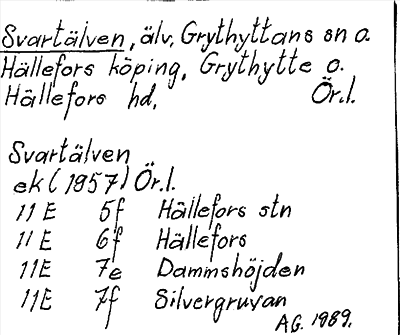 Svartälven, älv, Grythyttans sn o.
Hällefors köping, Grythytte o.
Hällefors hd, Ör.l.
Svartälven
ek (1957) Ör.l.
11 E 5f Hällefors stn
11 E 6f Hällefors
11E 7e Dammshöjden
11E 7f Silvergruvan
AG. 1989.